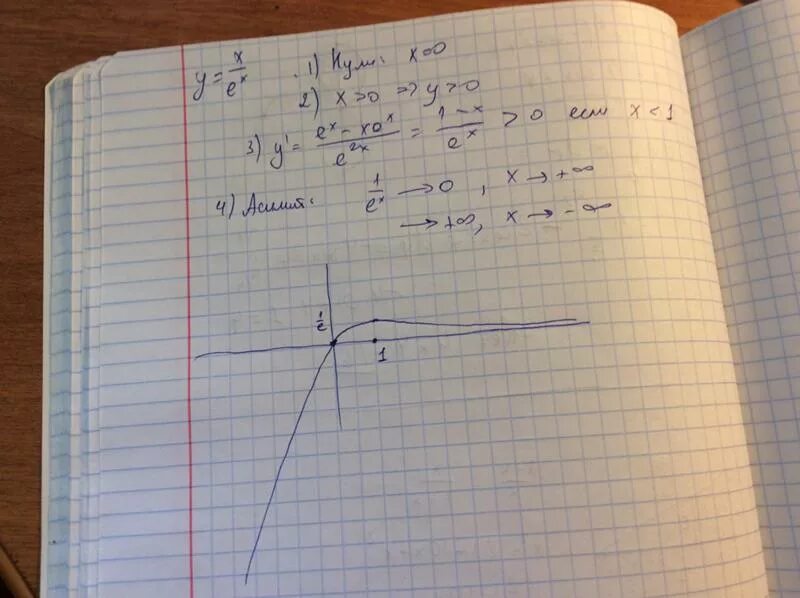 y = x/e^x
1) Нули: x=0
2) x>0 => y>0
3) y' = (e^x - xe^x)/e^2x = (1-x)/e^x > 0 если x < 1
4) Асимпт: 1/e^x → 0, x → +∞
→ +∞, x → -∞
1/e
1